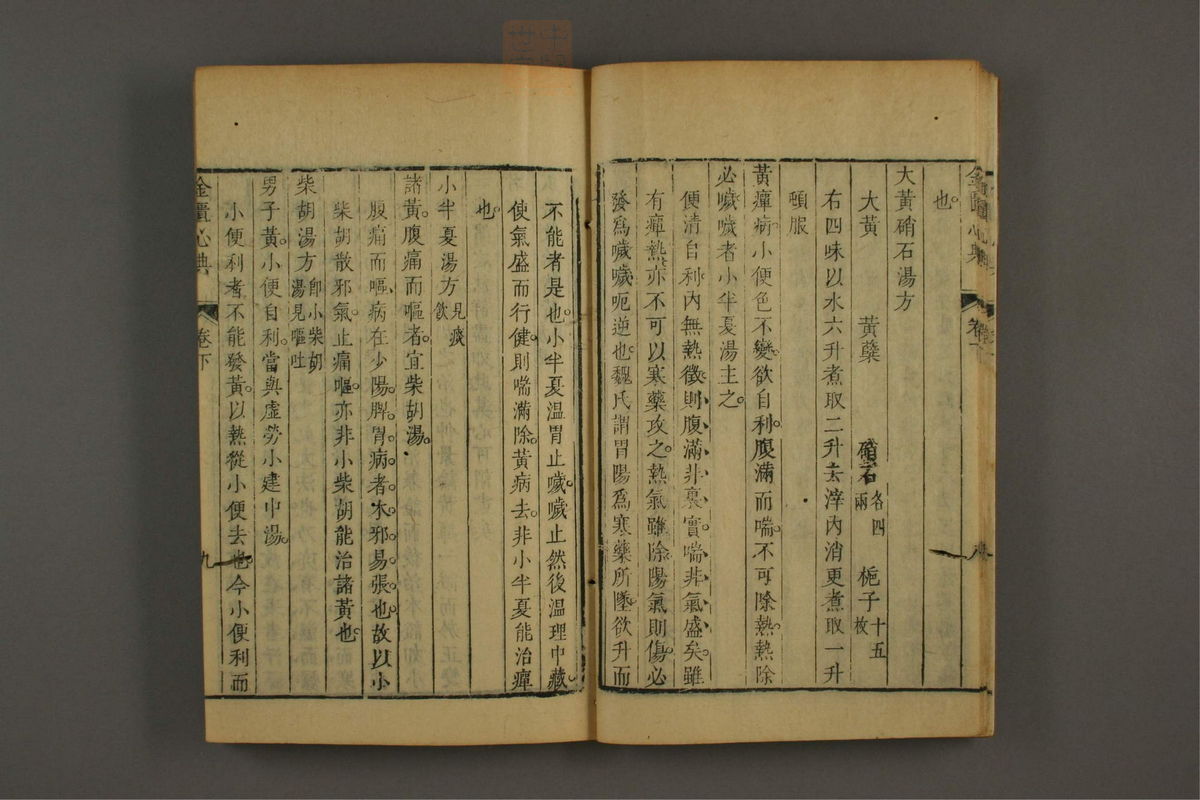 也
大黃硝石湯方
大黃 黃蘗 硝石各四兩 梔子十五枚
右四味以水六升煮取二升去滓內消更煮取一升
頓服
黃癉病小便色不變欲自利腹滿而喘不可除熱熱除
必噦噦者小半夏湯主之
便清自利內無熱徵則腹滿非裏實喘非氣盛矣雖
有癉熱亦不可以寒藥攻之熱氣雖除陽氣則傷必
發爲噦噦呃逆也魏氏謂胃陽爲寒藥所墜欲升而
不能者是也小半夏溫胃止噦噦止然後溫理中藏
使氣盛而行健則喘滿除黃病去非小半夏能治癉
也
小半夏湯方見痰飲
諸黃腹痛而嘔者宜柴胡湯
腹痛而嘔病在少陽脾胃病者木邪易張也故以小
柴胡散邪氣止痛嘔亦非小柴胡能治諸黃也
柴胡湯方卽小柴胡湯見嘔吐
男子黃小便自利當與虛勞小建中湯
小便利者不能發黃以熱從小便去也今小便利而
金匱心典 卷下 九